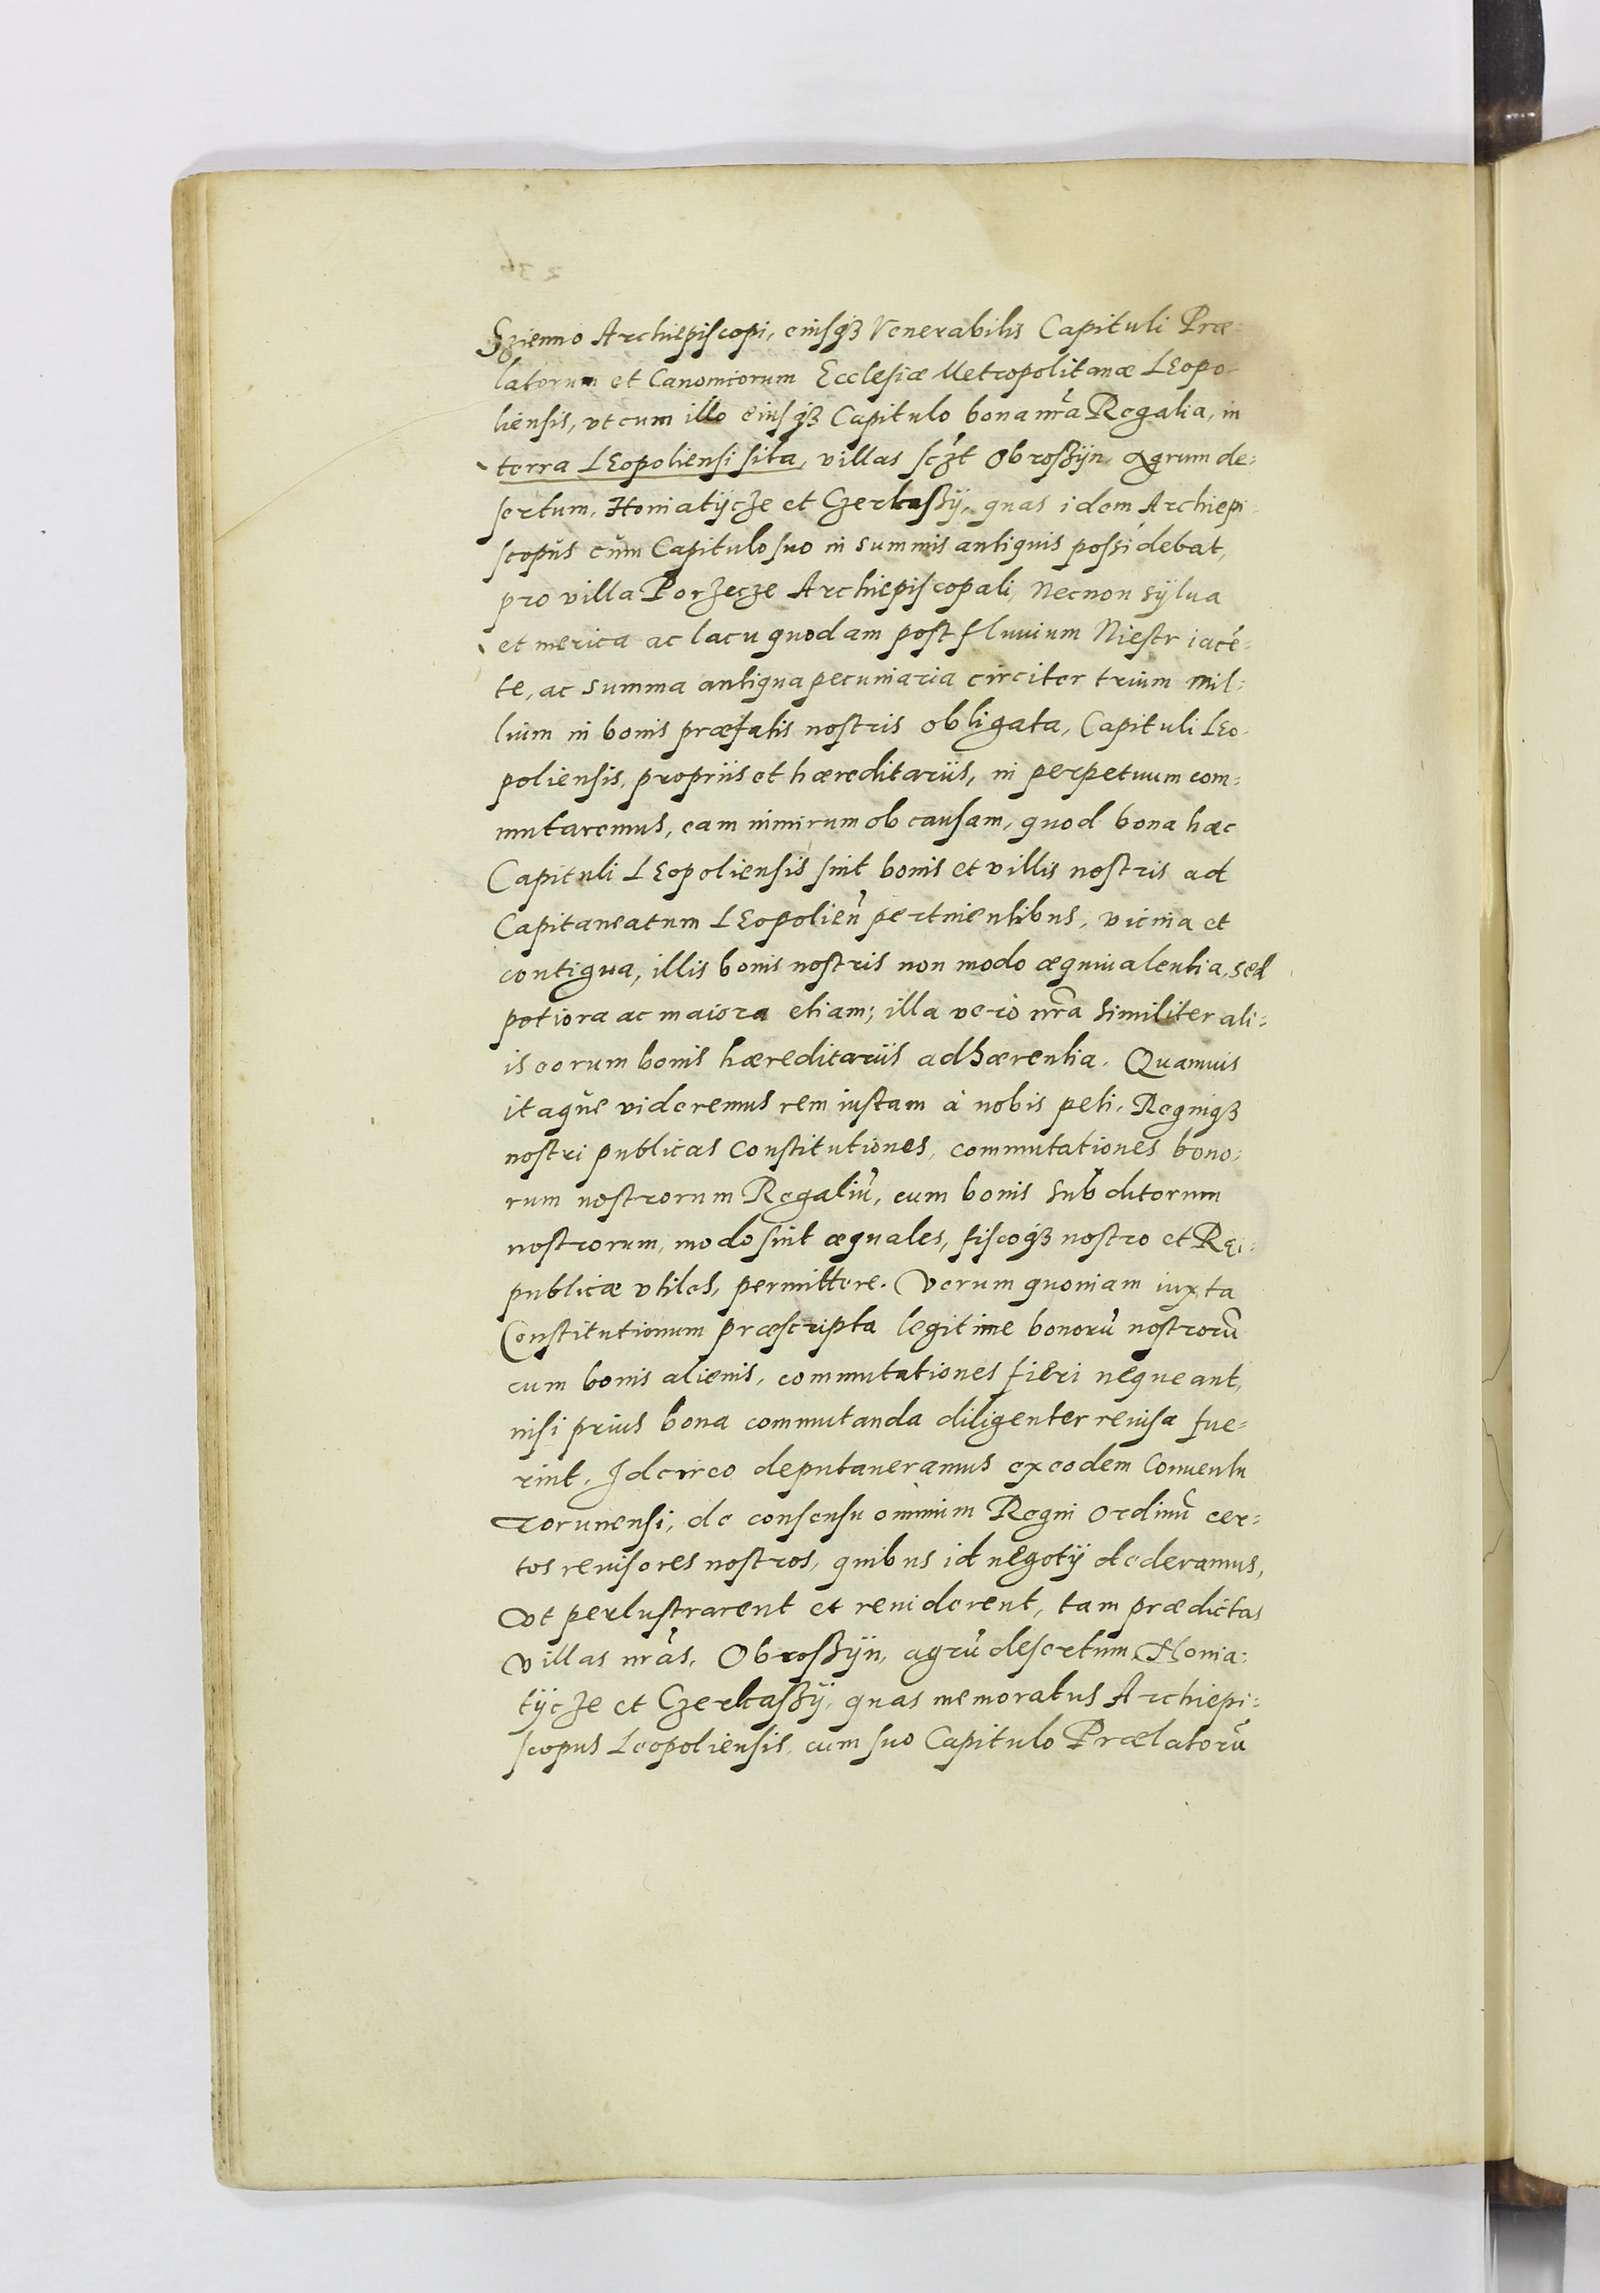 Szienno Archiepiscopi, eiusqȝ Venerabilis Capituli Præ-
latorum et Canonicorum Ecclesiæ Metropolitanæ LEopo-
liensis, vt cum illo eiusqȝ Capitulo bona nr̃a Regalia, in
terra LEopoliensi sita, villas sczt̃ Obrosßyn, agrum de=
sertum, Honiatÿcze et Czerkasßÿ, quas idem Archiepi-
scopus cum Capitulo suo in summis antiquis possidebat,
pro villa Porzecze Archiepiscopali, Necnon sÿlua
et merica ac lacu quodam post fluuium Niestr iacẽ=
te, ac summa antiqua pecuniaria circiter trium mil=
lium in bonis præfatis nostris obligata, Capituli LEo-
poliensis, propriis et hæreditariis, in perpetuum com=
mutaremus, eam nimirum ob causam, quod bona hæc
Capituli LEopoliensis sint bonis et villis nostris ad
Capitaneatum LEopolień pertinentibus, vicina et
contigua, illis bonis nostris non modo æquiualentia, sed
potiora ac maiora etiam; illa verò nr̃a similiter ali=
is eorum bonis hæreditariis adhærentia. Quamuis
itaque videremus rem iustam à nobis peti, Regniqȝ
nostri publicas Constitutiones, commutationes bono=
rum nostrorum Regaliũ, cum bonis subditorum
nostrorum, modo sint æquales, fiscoqȝ nostro et Rei=
publicæ vtiles, permittere. Verum quoniam iuxta
Constitutionum præscripta legitime bonorũ nostrorũ
cum bonis alienis, commutationes fieri nequeant,
nisi prius bona commutanda diligenter reuisa fue=
rint. Idcirco deputaueramus ex eodem Conuentu
Torunensi, de consensu omnium Regni Ordinũ cer=
tos reuisores nostros, quibus id negotÿ dederamus,
Vt perlustrarent et reuiderent, tam prædictas
villas nr̃as, Obrosßyn, agrũ desertum, Honia=
tÿcze et Czerkasßÿ, quas memoratus Archiepi=
scopus Leopoliensis, cum suo Capitulo Prælatorũ